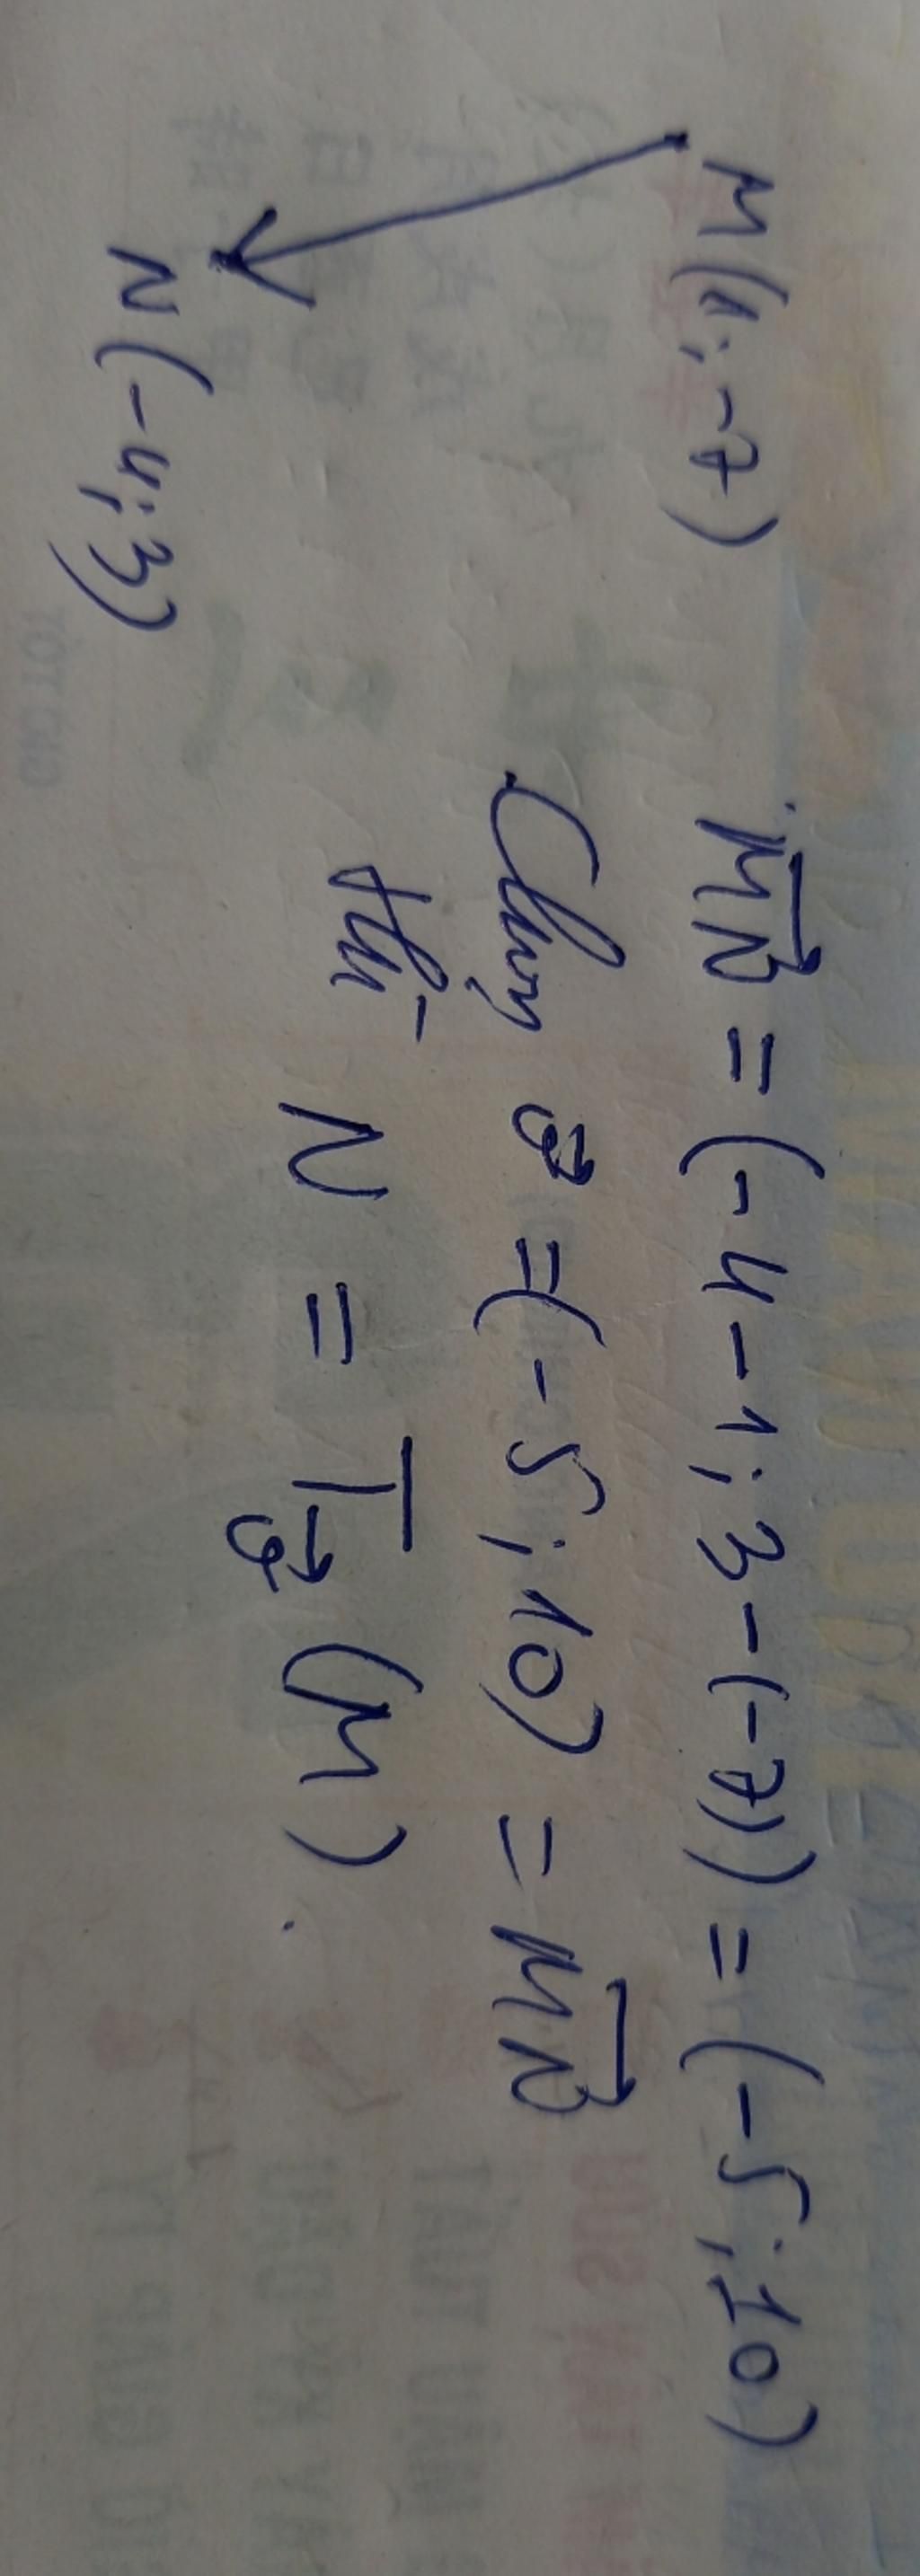 M(1;-7)
N(-4;3)
MN→ = (-4-1; 3-(-7)) = (-5; 10)
Chọn v→ = (-5; 10) = MN→
thì N = T_v→ (M).